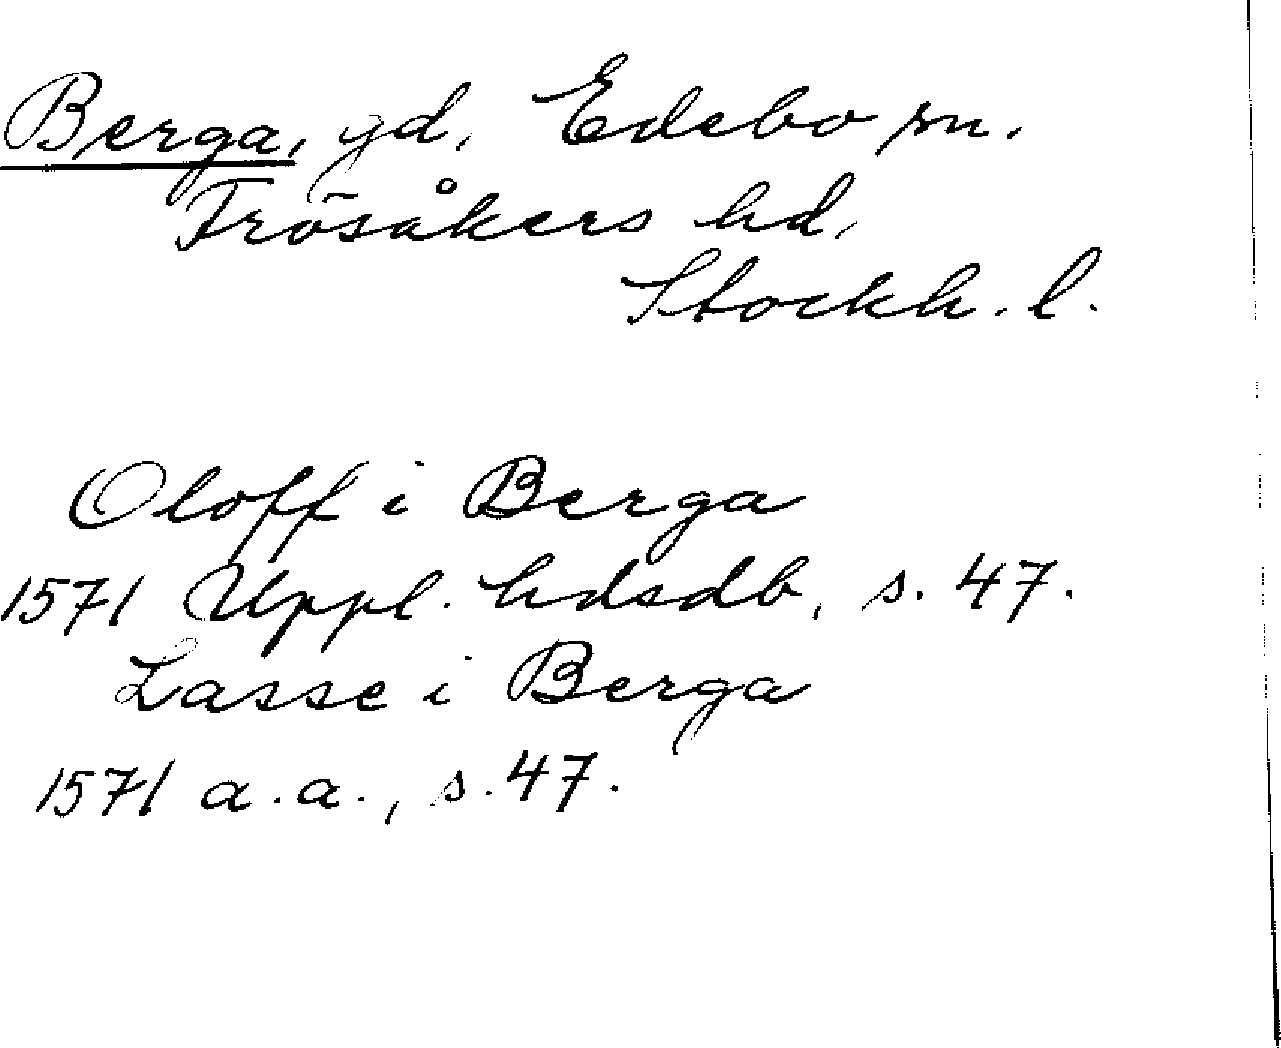 Berga, gd, Edebo sn.
Frösåkers hd,
Stockh. l.
Oloff i Berga
1571 Uppl. hdsdb, s. 47.
Lasse i Berga
1571 a.a., s. 47.